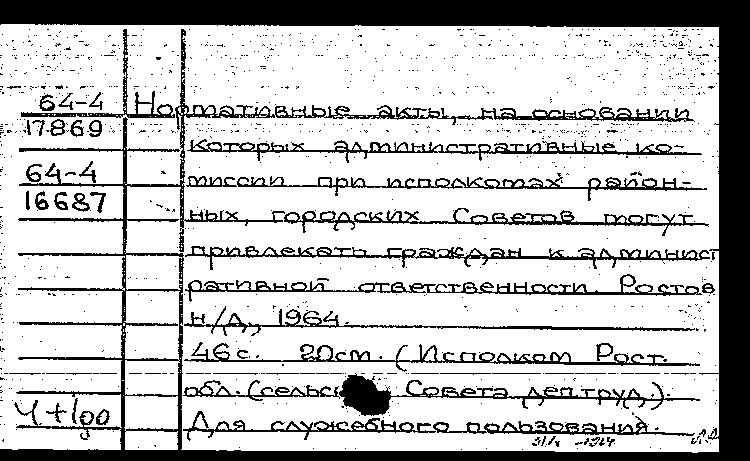 64-4 Нормативные акты, на основании
17869 которых административные ко-
64-4 миссии при исполкомах район-
16687 ных, городских Советов могут
привлекать граждан к админист
ративной ответственности. Ростов
н/Д, 1964.
46с. 20см. (Исполком Рост.
обл. (сельск Совета деп.труд.).
Для служебного пользования.